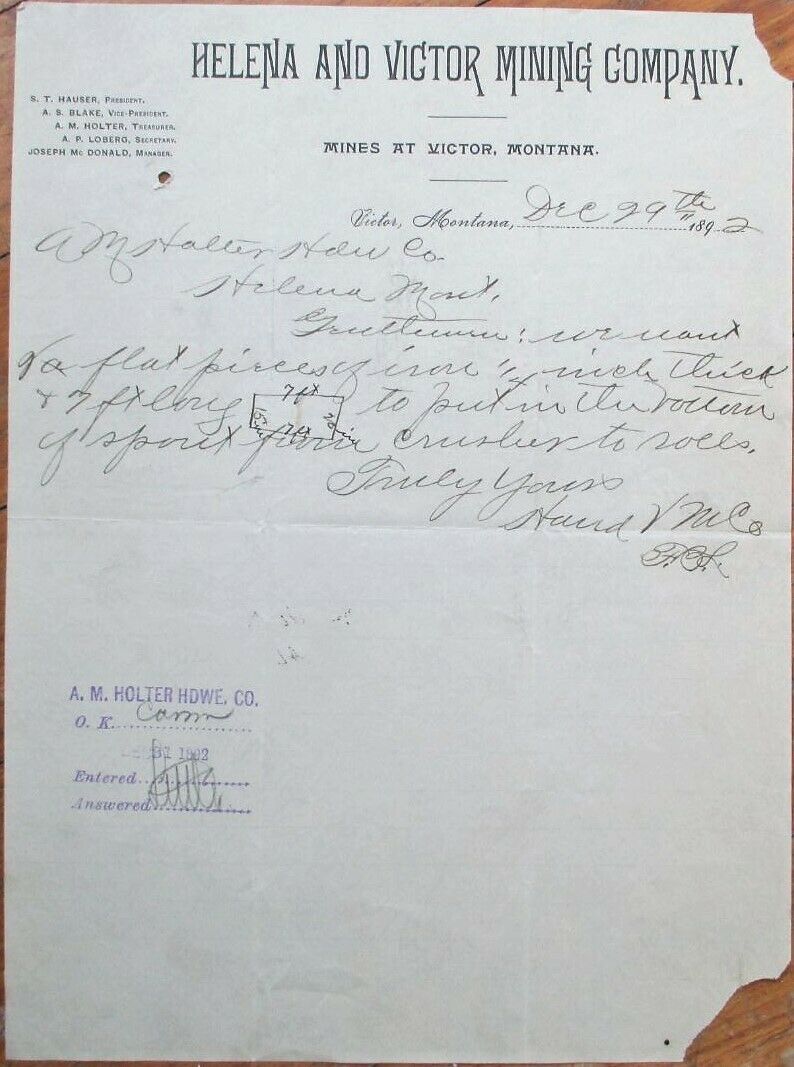 HELENA AND VICTOR MINING COMPANY.
S. T. HAUSER, PRESIDENT.
A. S. BLAKE, VICE-PRESIDENT.
A. M. HOLTER, TREASURER.
A. P. LOBERG, SECRETARY.
JOSEPH MC DONALD, MANAGER.
MINES AT VICTOR, MONTANA.
Victor, Montana, Dec 29th 1892
A M Holter Hdw Co.
Helena Mont.
Gentlemen: we want
flat pieces of iron inch thick
& 7 ft long to put in the bottom
7 ft
7 ft
of spout from crusher to rolls.
Truly Yours
H and V M Co
A. M. HOLTER HDWE. CO.
O. K.
31 1892
Entered
Answered